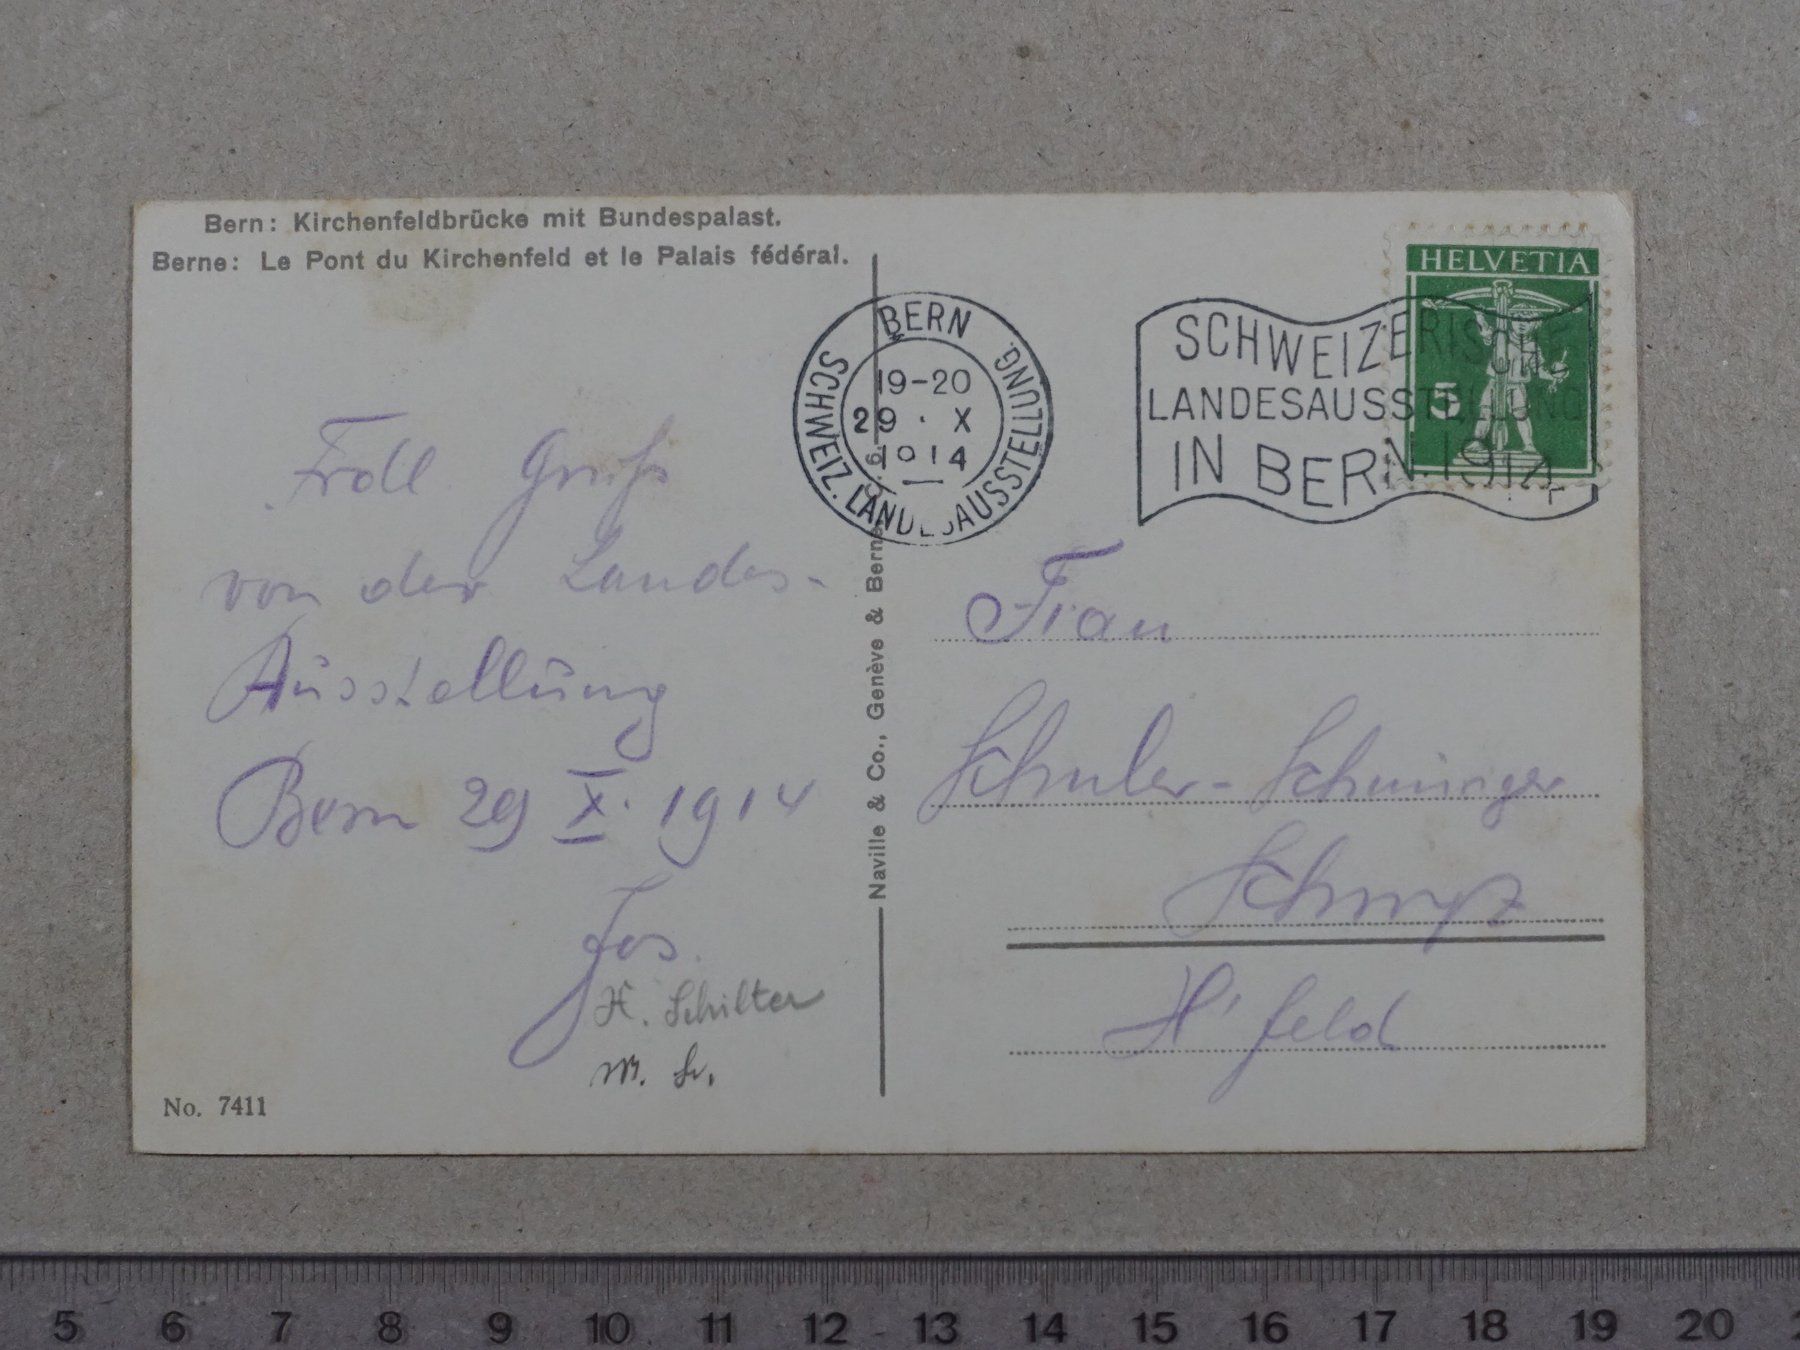 Bern: Kirchenfeldbrücke mit Bundespalast.
Berne: Le Pont du Kirchenfeld et le Palais fédéral.
HELVETIA
5
BERN
SCHWEIZ. LANDESAUSSTELLUNG.
19-20
29 . X
1914
SCHWEIZERISCHE
LANDESAUSSTELLUNG
IN BERN. 1914
Frdl. Gruß
von der Landes-
Ausstellung
Bern 29 X. 1914
Jos.
H. Schilter
Naville & Co., Genève & Berne
Frau
Schuler-
Schwyz
H'feld
No. 7411
5 6 7 8 9 10 11 12 13 14 15 16 17 18 19 20